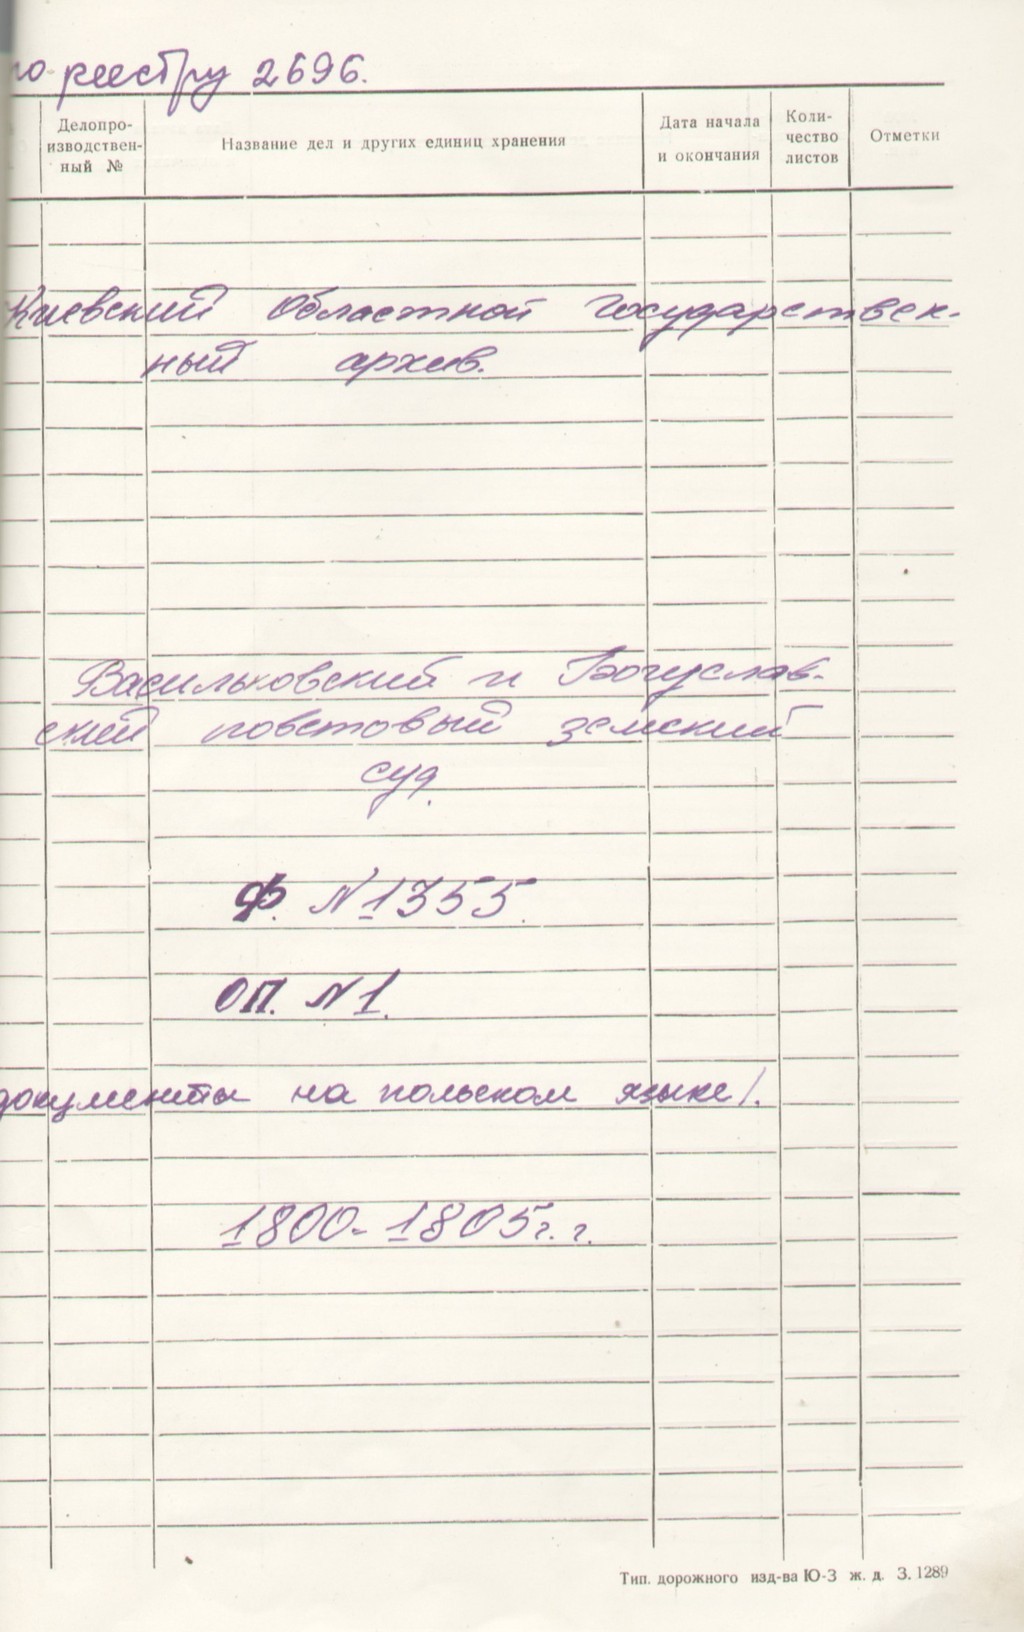 по реестру 2696.
Делопро-
изводствен-
ный №
Название дел и других единиц хранения
Дата начала
и окончания
Коли-
чество
листов
Отметки
Киевский Областной Государствен-
ный архив.
Васильковский и Богуслав-
ский поветовый земский
суд.
Ф. №1355.
ОП. №1.
документы на польском языке/.
1800-1805г.г.
Тип. дорожного изд-ва Ю-З ж. д. З. 1289